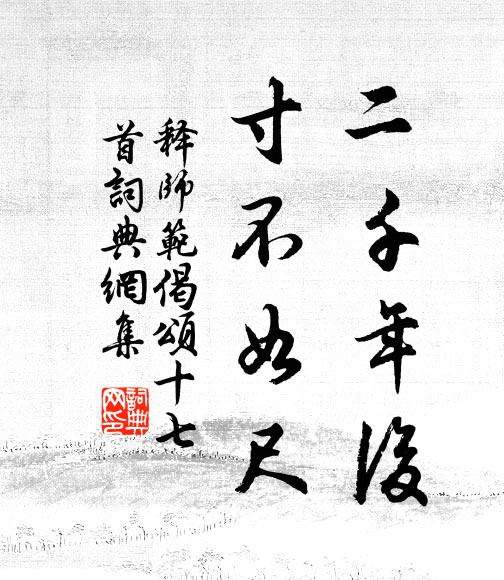 二千年後
寸不如尺
释師範偈頌十七
首詞典網集
詞典
网印